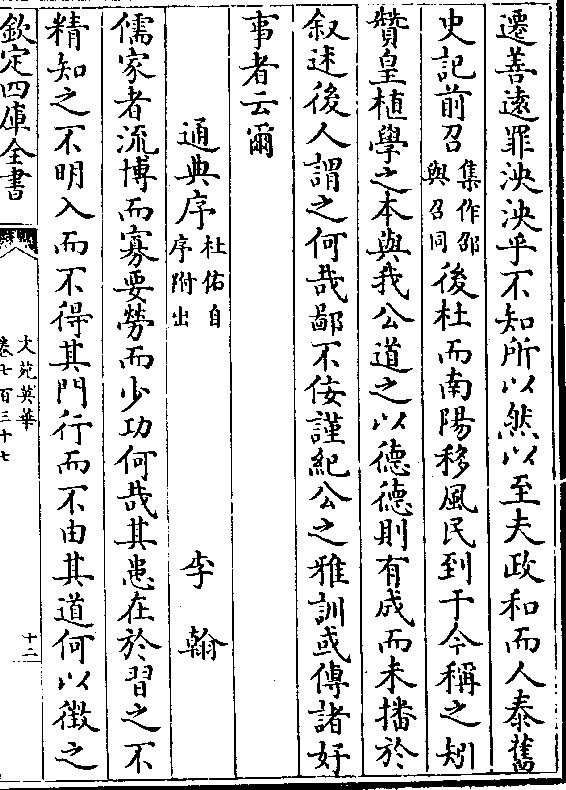 遷善遠罪泱泱乎不知所以然以至夫政和而人泰舊
史記前召集作邵與召同後杜而南陽移風民到于今稱之矧
贊皇植學之本與我公道之以德德則有成而未播於
叙述後人謂之何哉鄙不佞謹紀公之雅訓或傳諸好
事者云爾
通典序杜佑自序附出 李翰
儒家者流博而寡要勞而少功何哉其患在於習之不
精知之不明入而不得其門行而不由其道何以徵之
欽定四庫全書
文苑英華
卷七百三十七
十二